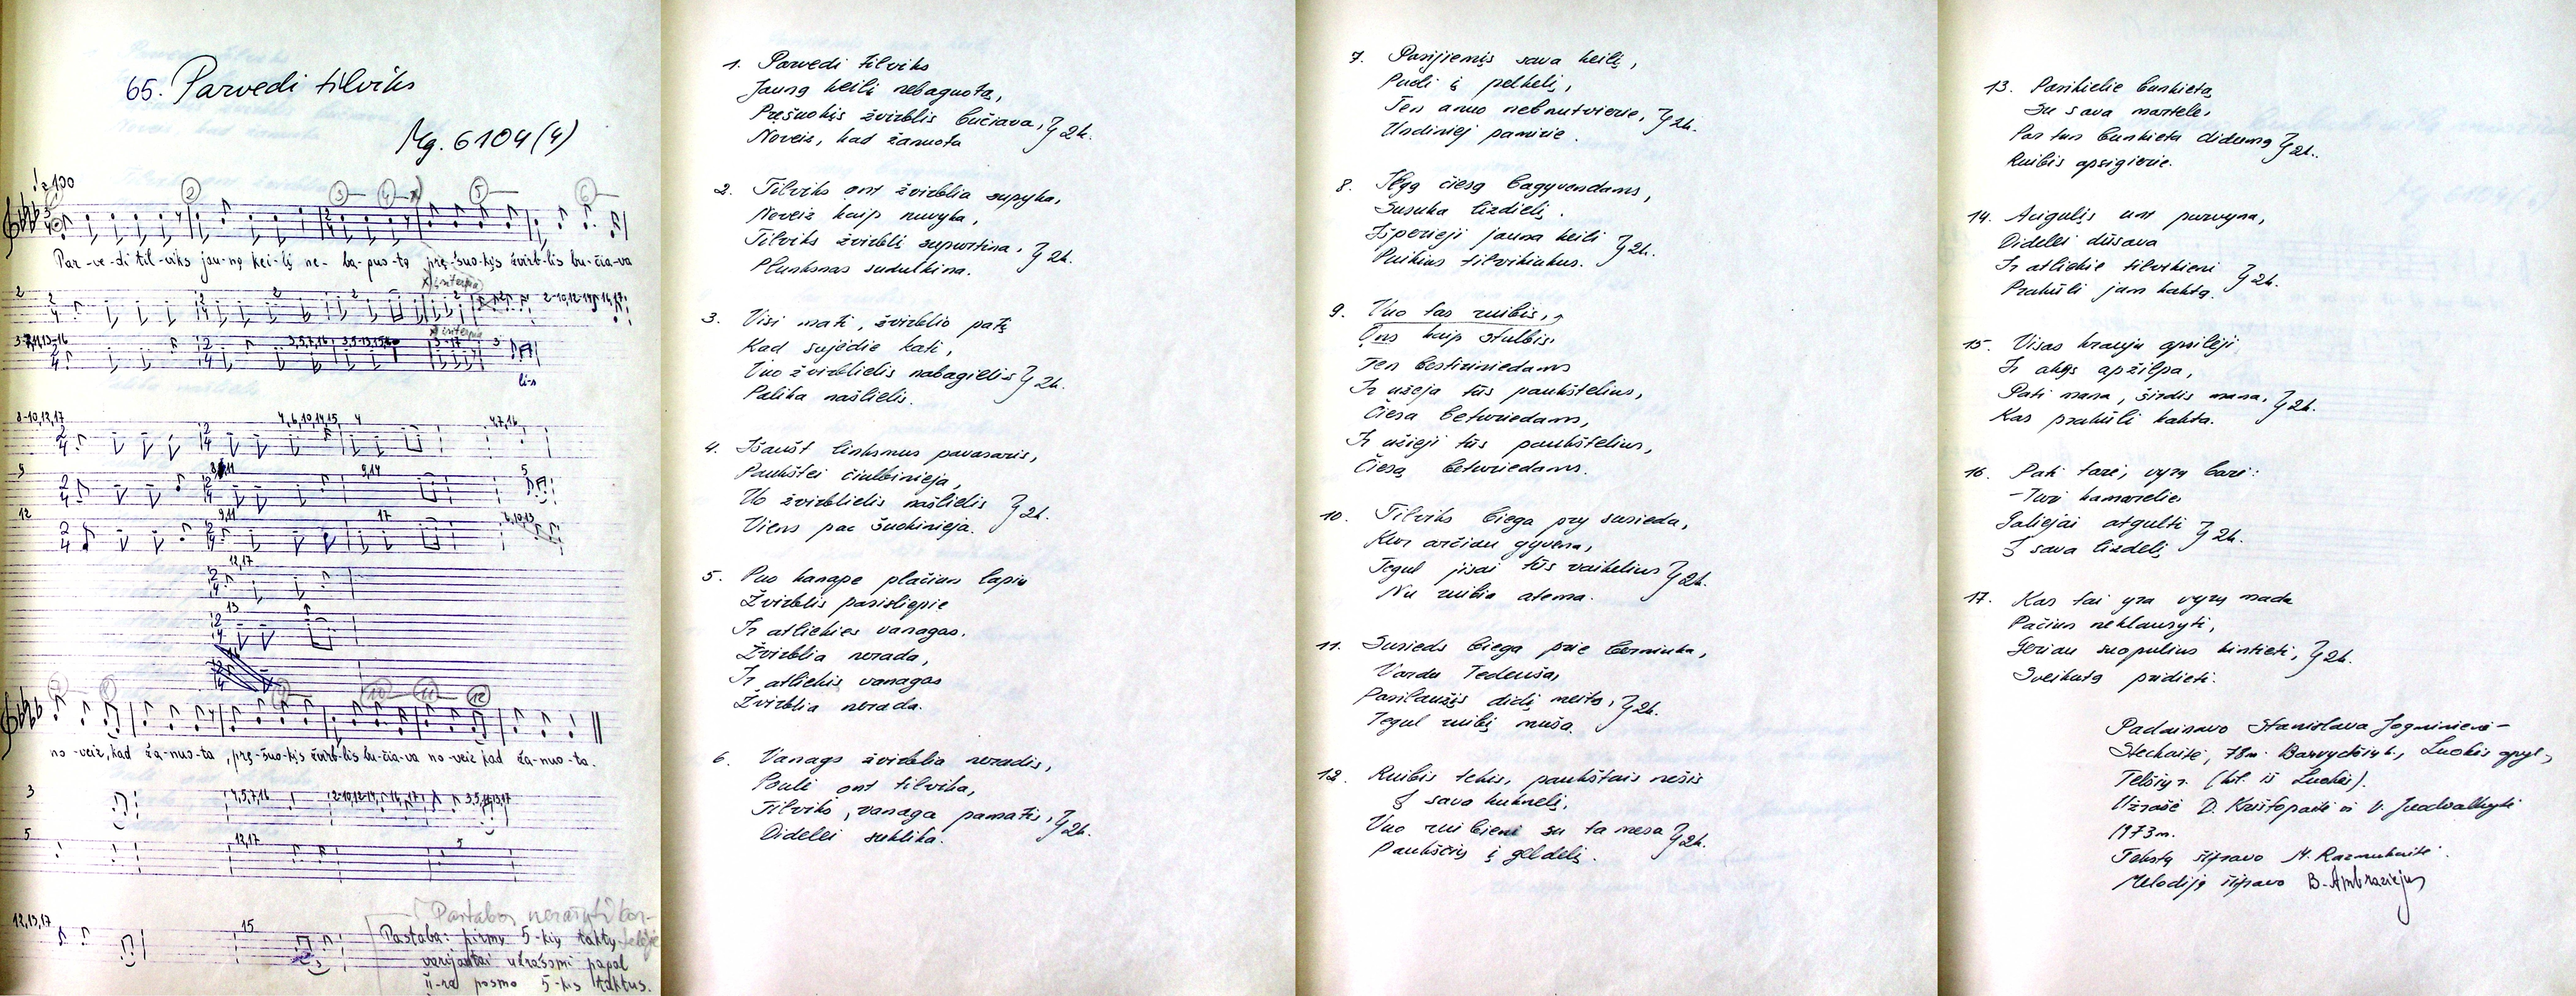 65. Parvedi tilviks
Mg. 6104(4)
Par-ve-di til-viks jau-ną kei-lį ne-ba-puo-tą prę-šuo-kįs žvirb-lis bu-čia-va
no-veiz, kad ža-nuo-ta, prę-šuo-kįs žvirb-lis bu-čia-va no-veiz kad ža-nuo-ta.
Pastabos nerašyti kor-
telėje
Pastaba: pirmų 5-kių taktų
varijantai užrašomi pagal
II-ra posmo 5-kis taktus.
1. Parvedi tilviks
Jauną keilį nebaguotą,
Pręšuokįs žvirblis bučiava, } 2k.
Noveiz, kad žanuota
2. Tilviks ont žvirblia supyka,
Noveiz kaip nuvyka,
Tilviks žvirblį supurtina, } 2k.
Plunksnas sudulkina.
3. Visi mati, žvirblio patį
Kad sujėdie kati,
Vuo žvirblielis nabagielis } 2k.
Palika našlielis.
4. Išaušt linksmus pavasaris,
Paukštei čiulbinieja,
Uo žvirblielis našlielis } 2k.
Viens pac šuokinieja.
5. Puo kanape plačium lapiu
Žvirblis pasisliepie
Ir atliekies vanagas.
Žvirblia nerada,
Ir atliekis vanagas
Žvirblia nerada.
6. Vanags žvirblia neradis,
Pouli ont tilvika,
Tilviks, vanaga pamatis, } 2k.
Didelei suklika.
7. Pasijiemįs sava keilį,
Pudi į pelkelį,
Ten anuo nebnutvierie, } 2k.
Undiniej panirie.
8. Ilgą čiesą bagyvendams,
Susuka lizdielį.
Išperieji jauna keili } 2k.
Puikius tilvikiukus.
9. Vuo tas ruibis,
Ons kaip stulbis
Ten bestiriniedams
Ir užeja tūs paukštelius,
Čiesa betwriedams,
Ir užieji tūs paukštelius,
Čiesą betwriedams.
10. Tilviks biega pry susieda,
Kur arčiau gyvena,
Tegul jisai tūs vaikelius } 2k.
Nu ruibia atema.
11. Susieds biega prie berniuka,
Vardu Tedeuša,
Pasilaužįs didį meita, } 2k.
Tegul ruibį muša.
12. Ruibis tekis, paukštais nešis
Į sava kuknelį,
Vuo ruibieni su ta mesa } 2k.
Paukščius į geldelį.
13. Pasikielie bankietą
Su sava martele,
Par tun bankieta didumą } 2k.
Ruibis apsigierie.
14. Acigulįs unt purvyna,
Didelei dūsava
Ir atliekie tilvikieni } 2k.
Prakūli jam kaktą.
15. Visas krauju apsileji
Ir akys apžilpa,
Pati mana, širdis mana, } 2k.
Kas prakūli kakta.
16. Pati tarė, vyrą barė:
- Turi kamarelie
Galiejai atgulti } 2k.
Į sava lizdelį
17. Kas tai yra vyrų mada
Pačius neklausyti,
Geriau suopulius kintieti, } 2k.
Sveikatą pridieti.
Padainavo Stanislava Jogminienė-
Stechaitė, 78m. Barvydžių k., Luokės apyl.,
Telšių r. (kil. iš Luokės).
Užrašė D. Krištopaitė ir V. Juodvalkytė
1973m.
Tekstą šifravo M. Razmukaitė.
Melodiją šifravo B. Ambraziejus